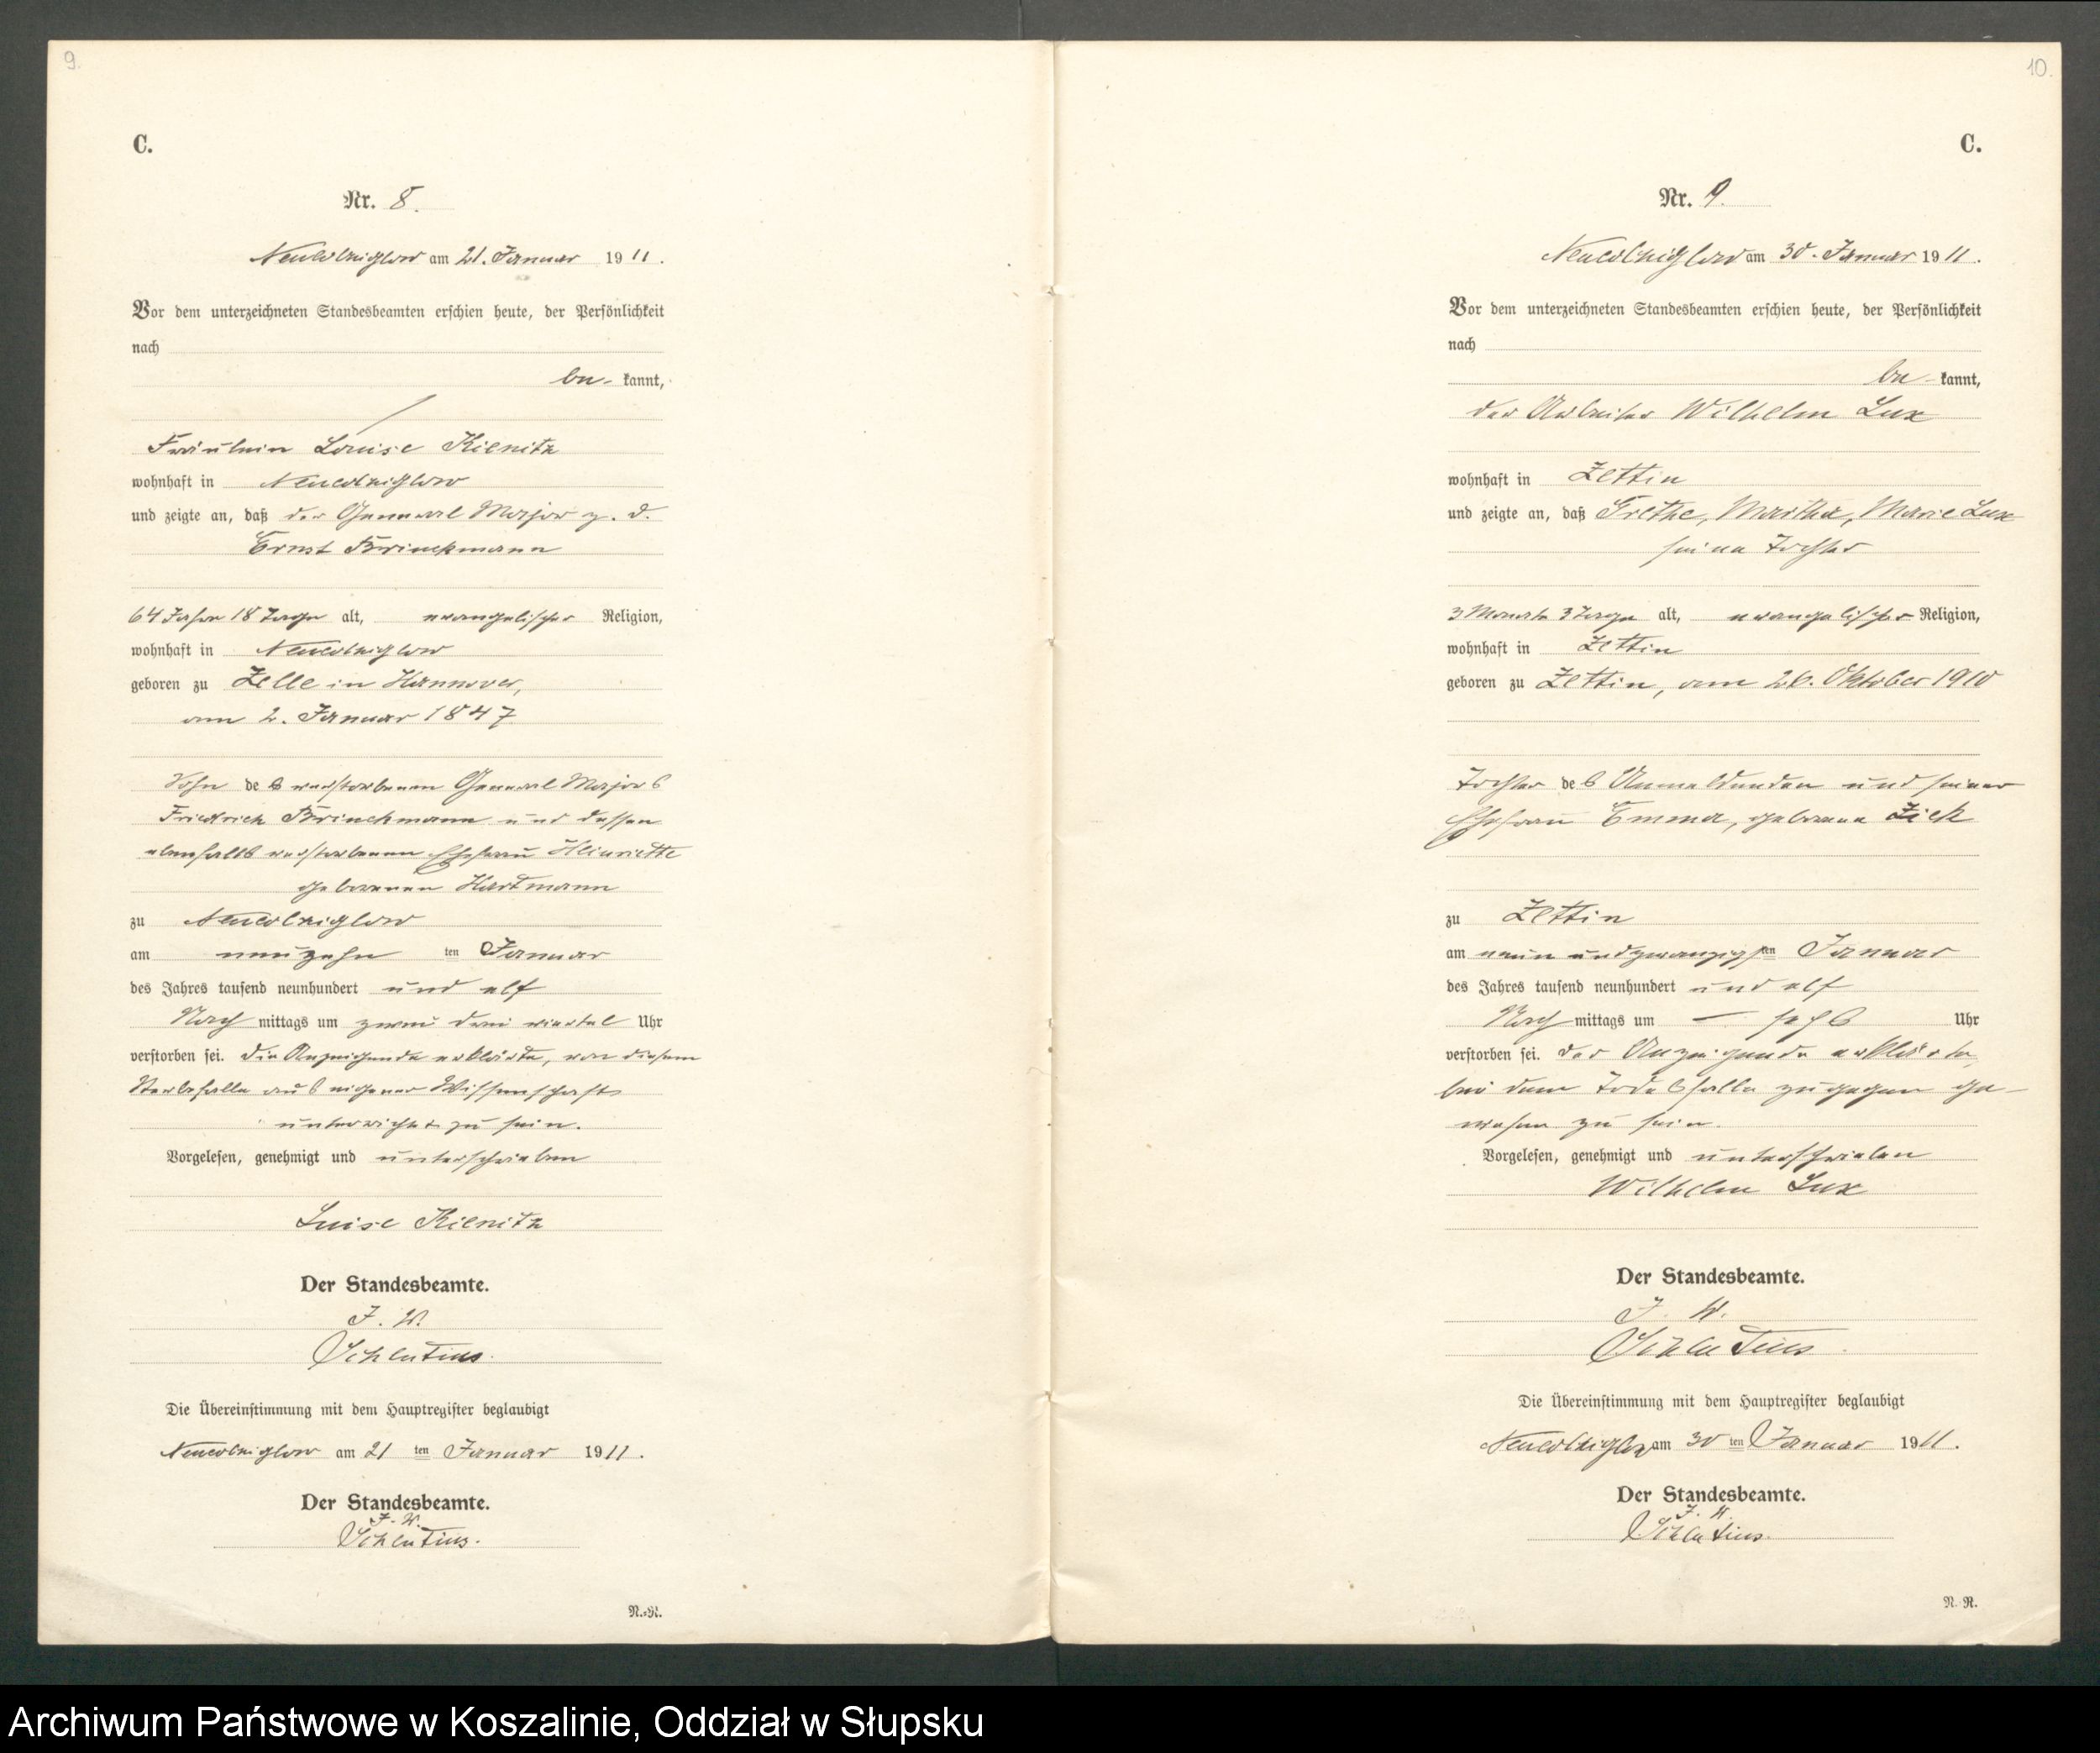 9.
C.
Nr. 8.
Neukolziglow am 21. Januar 1911.
Vor dem unterzeichneten Standesbeamten erschien heute, der Persönlichkeit
nach
be- kannt,
Fräulein Louise Kienitz
wohnhaft in Neukolziglow
und zeigte an, daß der General Major z. D.
Ernst Brinckmann
64 Jahre 18 Tage alt, evangelischer Religion,
wohnhaft in Neukolziglow
geboren zu Zelle in Hannover,
am 2. Januar 1847
Sohn des verstorbenen General Majors
Friedrich Brinckmann und dessen
ebenfalls verstorbenen Ehefrau Heinriette
geborenen Hartmann
zu Neukolziglow
am neunzehn ten Januar
des Jahres tausend neunhundert und elf
Nach mittags um zwei drei viertel Uhr
verstorben sei. Die Anzeigende erklärte, von diesem
Sterbefalle aus eigener Wissenschaft
unterrichtet zu sein.
Vorgelesen, genehmigt und unterschrieben
Luise Kienitz
Der Standesbeamte.
J. V.
Schlutius.
Die Übereinstimmung mit dem Hauptregister beglaubigt
Neukolziglow am 21 ten Januar 1911.
Der Standesbeamte.
J. V.
Schlutius.
N.-R.
10.
C.
Nr. 9.
Neukolziglow am 30. Januar 1911.
Vor dem unterzeichneten Standesbeamten erschien heute, der Persönlichkeit
nach
be- kannt,
der Arbeiter Wilhelm Lux
wohnhaft in Zettin
und zeigte an, daß Grethe, Martha, Marie Lux
seine Tochter
3 Monate 3 Tage alt, evangelischer Religion,
wohnhaft in Zettin
geboren zu Zettin, am 26. Oktober 1910
Tochter des Anmeldenden und seiner
Ehefrau Emma, geborene Zick
zu Zettin
am neun und zwanzigsten Januar
des Jahres tausend neunhundert und elf
Nach mittags um — sechs Uhr
verstorben sei. Der Anzeigende erklärte,
bei dem Todesfalle zugegen ge-
wesen zu sein.
Vorgelesen, genehmigt und unterschrieben
Wilhelm Lux
Der Standesbeamte.
J. V.
Schlutius.
Die Übereinstimmung mit dem Hauptregister beglaubigt
Neukolziglow am 30 ten Januar 1911.
Der Standesbeamte.
J. V.
Schlutius.
N. R.
Archiwum Państwowe w Koszalinie, Oddział w Słupsku